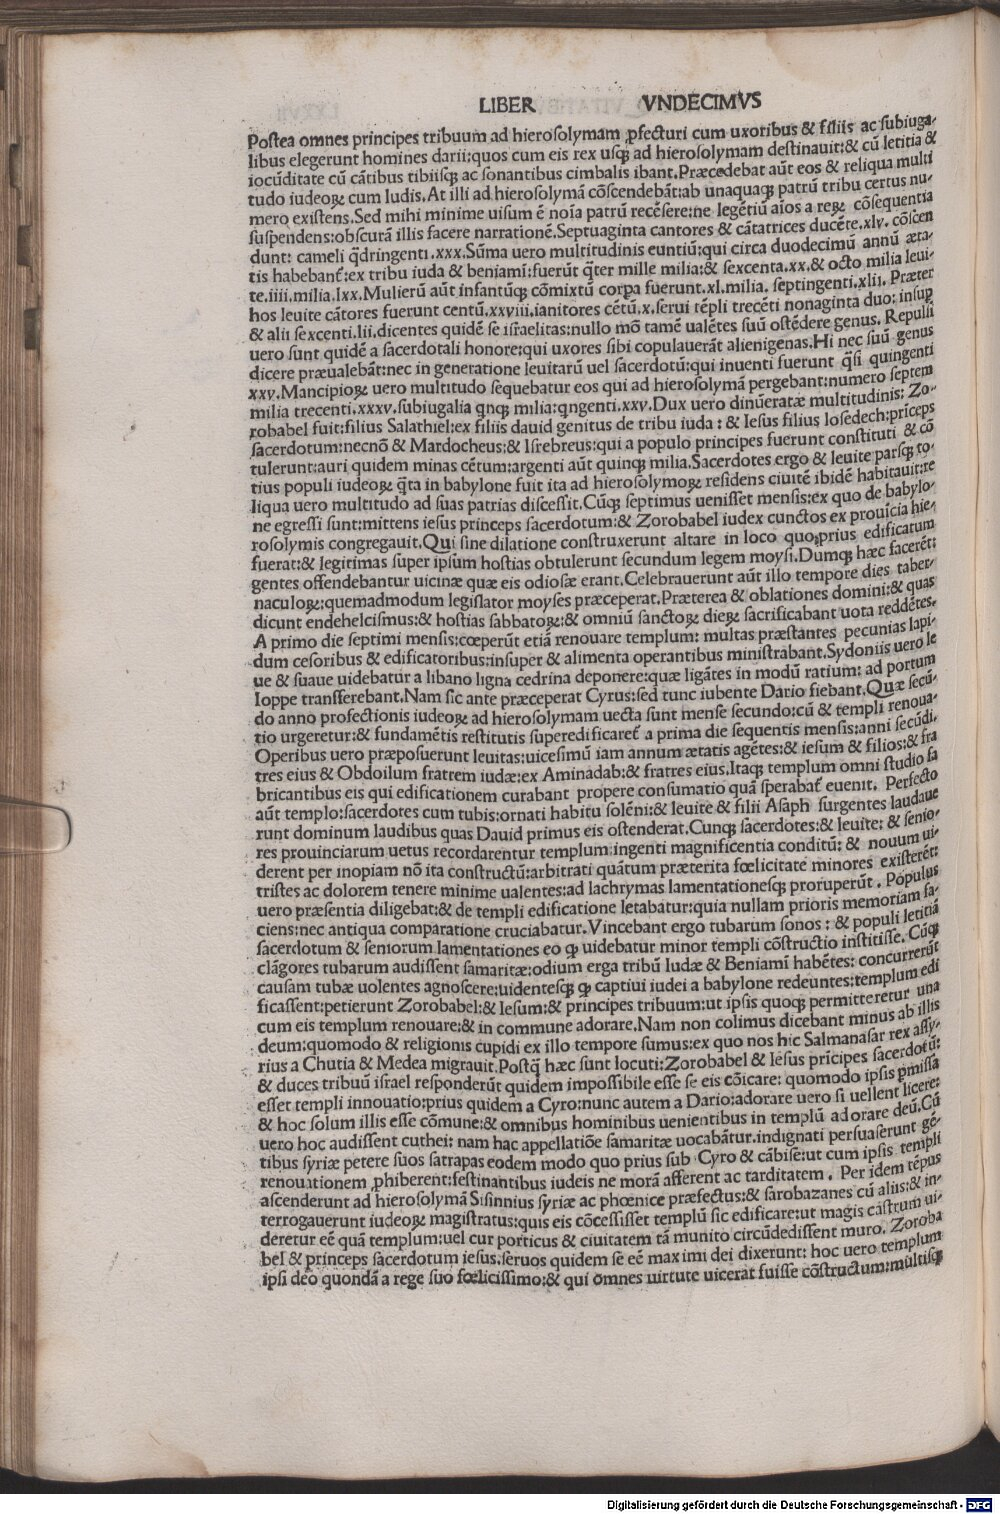 LIBER VNDECIMVS
Postea omnes principes tribuum ad hierosolymam ꝓfecturi cum uxoribus & filiis ac subiuga-
libus elegerunt homines darii:quos cum eis rex usq; ad hierosolymam destinauit:& cū letitia &
iocūditate cū cātibus tibiisq; ac sonantibus cimbalis ibant.Præcedebat aūt eos & reliqua multi
tudo iudeoꝝ cum ludis.At illi ad hierosolymā cōscendebāt:ab unaquaq; patrū tribu certus nu-
mero existens.Sed mihi minime uisum ē noīa patrū recēsere:ne legētiū aīos a reꝝ cōsequentia
suspendens:obscurā illis facere narrationē.Septuaginta cantores & cātatrices ducēte.xlv. cōscen
dunt: cameli q̄dringenti.xxx.Sūma uero multitudinis euntiū:qui circa duodecimū annū æta-
tis habebant̄:ex tribu iuda & beniamī:fuerūt q̄ter mille milia:& sexcenta.xx.& octo milia leui-
te.iiii.milia.lxx.Mulierū aūt infantūq; cōmixtū corpa fuerunt.xl.milia. septingenti.xlii. Præter
hos leuite cātores fuerunt centū.xxviii.ianitores cētū.x.serui tēpli trecēti nonaginta duo: insup
& alii sexcenti.lii.dicentes quidē se israelitas:nullo mō tamē ualētes suū ostēdere genus. Repulsi
uero sunt quidē a sacerdotali honore:qui uxores sibi copulauerāt alienigenas.Hi nec suū genus
dicere præualebāt:nec in generatione leuitarū uel sacerdotū:qui inuenti fuerunt q̄si quingenti
xxv.Mancipioꝝ uero multitudo sequebatur eos qui ad hierosolymā pergebant:numero septem
milia trecenti.xxxv.subiugalia qnq; milia:qngenti.xxv.Dux uero dinūeratæ multitudinis: Zo-
robabel fuit:filius Salathiel:ex filiis dauid genitus de tribu iuda : & Iesus filius Iosedech:prīceps
sacerdotum:necnō & Mardocheus:& Isrebreus:qui a populo principes fuerunt constituti & cō
tulerunt:auri quidem minas cētum:argenti aūt quinq; milia.Sacerdotes ergo & leuite parsq; to-
tius populi iudeoꝝ q̄ta in babylone fuit ita ad hierosolymoꝝ residens ciuitē ibidē habitauit:re
liqua uero multitudo ad suas patrias discessit.Cūq; septimus uenisset mensis:ex quo de babylo-
ne egressi sunt:mittens iesus princeps sacerdotum:& Zorobabel iudex cunctos ex prouīcia hie-
rosolymis congregauit.Qui sine dilatione construxerunt altare in loco quo prius edificatum
fuerat:& legitimas super ipsum hostias obtulerunt secundum legem moysi.Dumq; hæc facerēt:
gentes offendebantur uicinæ quæ eis odiosæ erant.Celebrauerunt aūt illo tempore dies taber-
naculoꝝ:quemadmodum legislator moyses præceperat.Præterea & oblationes domini:& quas
dicunt endehelcismus:& hostias sabbatoꝝ:& omniū sanctoꝝ dieꝝ sacrificabant uota reddētes.
A primo die septimi mensis:cœperūt etiā renouare templum: multas præstantes pecunias lapi-
dum cesoribus & edificatoribus:insuper & alimenta operantibus ministrabant.Sydoniis uero le
ue & suaue uidebatur a libano ligna cedrina deponere:quæ ligātes in modū ratium: ad portum
Ioppe transferebant.Nam sic ante præceperat Cyrus:sed tunc iubente Dario fiebant.Quæ secū-
do anno profectionis iudeoꝝ ad hierosolymam uecta sunt mense secundo:cū & templi renoua-
tio urgeretur:& fundamētis restitutis superedificaret̄ a prima die sequentis mensis:anni secūdi.
Operibus uero præposuerunt leuitas:uicesimū iam annum ætatis agētes:& iesum & filios:& fra
tres eius & Obdoilum fratrem iudæ:ex Aminadab:& fratres eius.Itaq; templum omni studio fa
bricantibus eis qui edificationem curabant propere consumatio quā sperabat̄ euenit. Perfecto
aūt templo:sacerdotes cum tubis:ornati habitu solēni:& leuite & filii Asaph surgentes laudaue
runt dominum laudibus quas Dauid primus eis ostenderat.Cunq; sacerdotes:& leuite: & senio-
res prouinciarum uetus recordarentur templum:ingenti magnificentia conditū: & nouum ui-
derent per inopiam nō ita constructū:arbitrati quātum præterita fœlicitate minores existerēt:
tristes ac dolorem tenere minime ualentes:ad lachrymas lamentationesq; proruperūt . Populus
uero præsentia diligebat:& de templi edificatione letabatur:quia nullam prioris memoriam fa-
ciens:nec antiqua comparatione cruciabatur.Vincebant ergo tubarum sonos : & populi letitiā
sacerdotum & seniorum lamentationes eo ꝙ uidebatur minor templi cōstructio institisse. Cūq;
clāgores tubarum audissent samaritæ:odium erga tribū Iudæ & Beniamī habētes: concurrerūt
causam tubæ uolentes agnoscere:uidentesq; ꝙ captiui iudei a babylone redeuntes:templum edi
ficassent:petierunt Zorobabel:& Iesum:& principes tribuum:ut ipsis quoq; permitteretur una
cum eis templum renouare:& in commune adorare.Nam non colimus dicebant minus ab illis
deum:quomodo & religionis cupidi ex illo tempore sumus:ex quo nos hic Salmanasar rex assy-
rius a Chutia & Medea migrauit.Postq̄ hæc sunt locuti:Zorobabel & Iesus prīcipes sacerdotū:
& duces tribuū israel responderūt quidem impossibile esse se eis cōicare: quomodo ipsis pmissa
esset templi innouatio:prius quidem a Cyro:nunc autem a Dario:adorare uero si uellent licere:
& hoc solum illis esse cōmune:& omnibus hominibus uenientibus in templū adorare deū.Cū
uero hoc audissent cuthei: nam hac appellatiōe samaritæ uocabātur.indignati persuaserunt gē-
tibus syriæ petere suos satrapas eodem modo quo prius sub Cyro & cābise:ut cum ipsis templi
renouationem ꝓhiberent:festinantibus iudeis ne morā afferent ac tarditatem . Per idem tēpus
ascenderunt ad hierosolymā Sisinnius syriæ ac phœnice præfectus:& sarobazanes cū aliis:& in-
terrogauerunt iudeoꝝ magistratus:quis eis cōcessisset templū sic edificare:ut magis castrum ui-
deretur eē quā templum:uel cur porticus & ciuitatem tā munito circūdedissent muro. Zoroba
bel & princeps sacerdotum iesus.seruos quidem se eē maximi dei dixerunt: hoc uero templum
ipsi deo quondā a rege suo fœlicissimo:& qui omnes uirtute uicerat fuisse cōstructum:multisq;
Digitalisierung gefördert durch die Deutsche Forschungsgemeinschaft - DFG